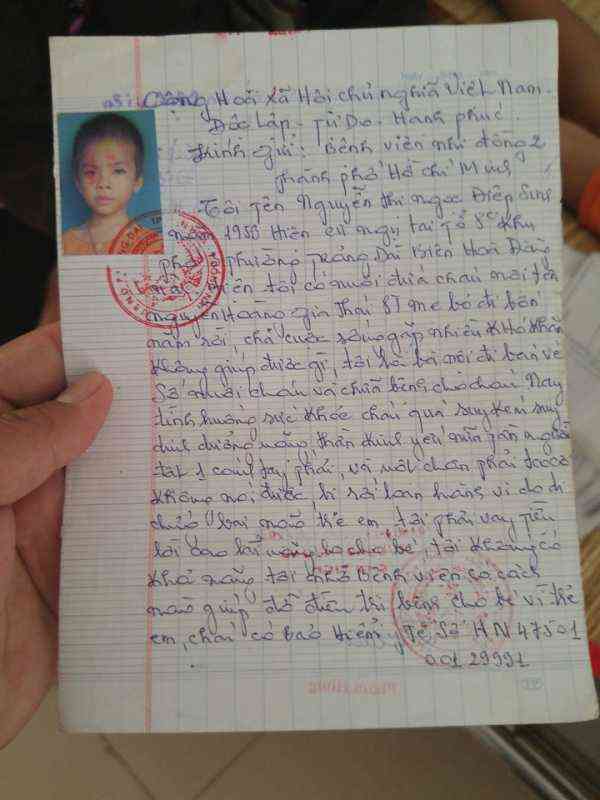 Cộng Hoà Xã Hội chủ nghĩa Việt Nam.
Độc Lập - Tự Do - Hạnh phúc.
Kính gửi: Bệnh viện nhi đồng 2
Thành phố Hồ chí Minh
Tôi Tên Nguyễn Thị ngọc Điệp Sinh
năm 1953 Hiện cư ngụ tại Tổ 5 Khu
phố phường Trảng Dài Biên Hoà Đồng
nai Hiện tôi có nuôi đứa cháu nội tên
nguyễn Hoàng gia Thái mẹ bỏ đi bốn
năm rồi, cha cuộc sống gặp nhiều Khó Khăn
Không giúp được gì, tôi là bà nội đi bán vé
Số nuôi cháu và chữa bệnh cho cháu Nay
tình huống sức khỏe cháu quá suy kém suy
dinh dưỡng nặng, thần kinh yếu nữa gần
tật 1 cánh tay phải, và một chân phải
Không nói được bị rối loạn hàng vi do di
chứng bại não trẻ em, tôi phải vay tiền
lời cho bé, tôi Không có
Khả năng tôi nhờ Bệnh viện có cách
nào giúp đỡ điều trị bệnh cho bé vì trẻ
em, cháu có Bảo Hiểm y Tế Số HN 47501
00129991